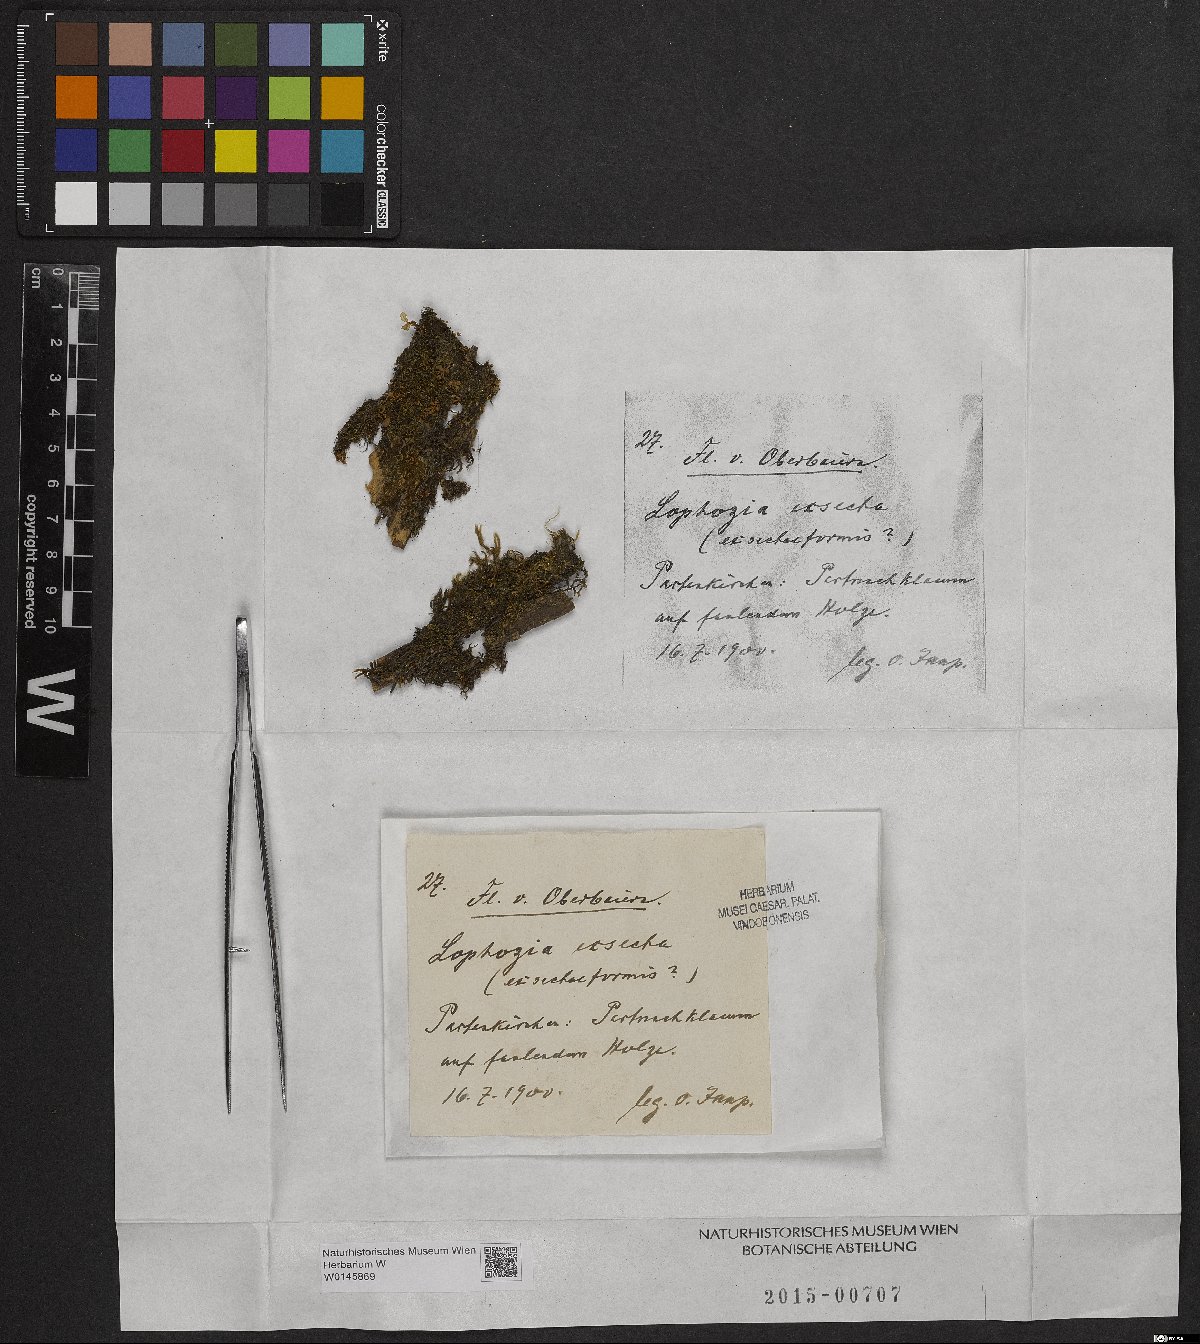 x-rite
colorchecker CLASSIC
mm
cm
0 1 2 3 4 5 6 7 8 9 10
copyright reserved
W
27.
Fl. v. Oberbaiern.
Lophozia exsecta
(exsectaeformis?)
Partenkirchen: Partnachklamm
auf faulendem Holze.
16.7.1900.
leg. O. Jaap.
27.
Fl. v. Oberbaiern.
Lophozia exsecta
(exsectaeformis?)
Partenkirchen: Partnachklamm
auf faulendem Holze.
16.7.1900.
leg. O. Jaap.
HERBARIUM
MUSEI CAESAR. PALAT.
VINDOBONENSIS
Naturhistorisches Museum Wien
Herbarium W
W0145869
NATURHISTORISCHES MUSEUM WIEN
BOTANISCHE ABTEILUNG
2015-00707